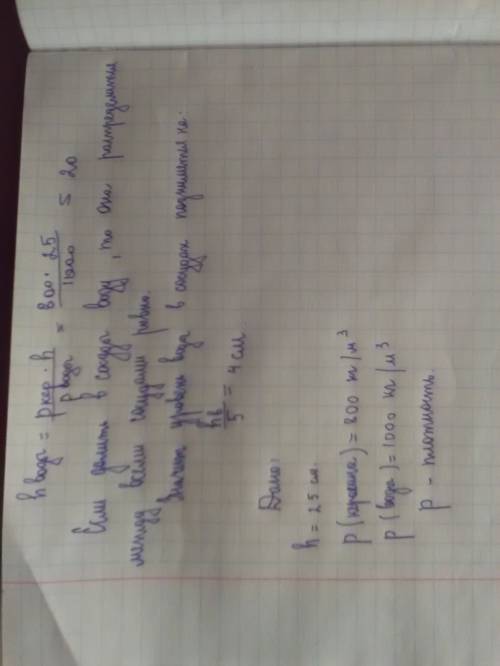 h воды = p кер · h / p воды = 800 · 25 / 1000 = 20
Если долить в сосуд воду, то она распределится
между всеми сосудами равно.
Значит уровень воды в сосудах поднимется на:
hв / 5 = 4 см
Дано:
h = 25 см.
p (керосина) = 800 кг/м³
p (воды) = 1000 кг/м³
p - плотность.